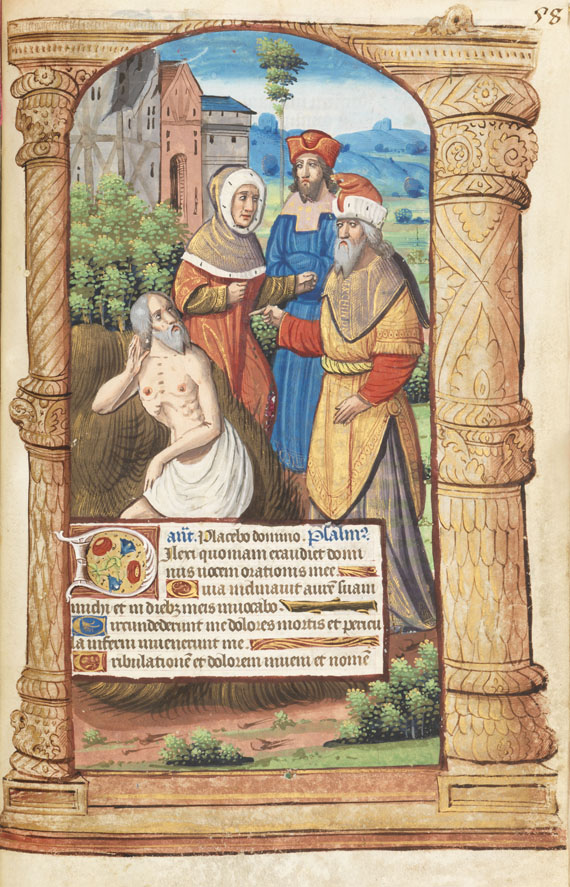 58
Añt. Placebo domino. Psalm9.
Dilexi quoniam exaudiet domi
nus vocem orationis mee
Quia inclinavit aurē suam
michi et in diebz meis invocabo.
Circundederunt me dolores mortis et pericu
la inferni invenerunt me.
Tribulationē et dolorem inveni et nomē